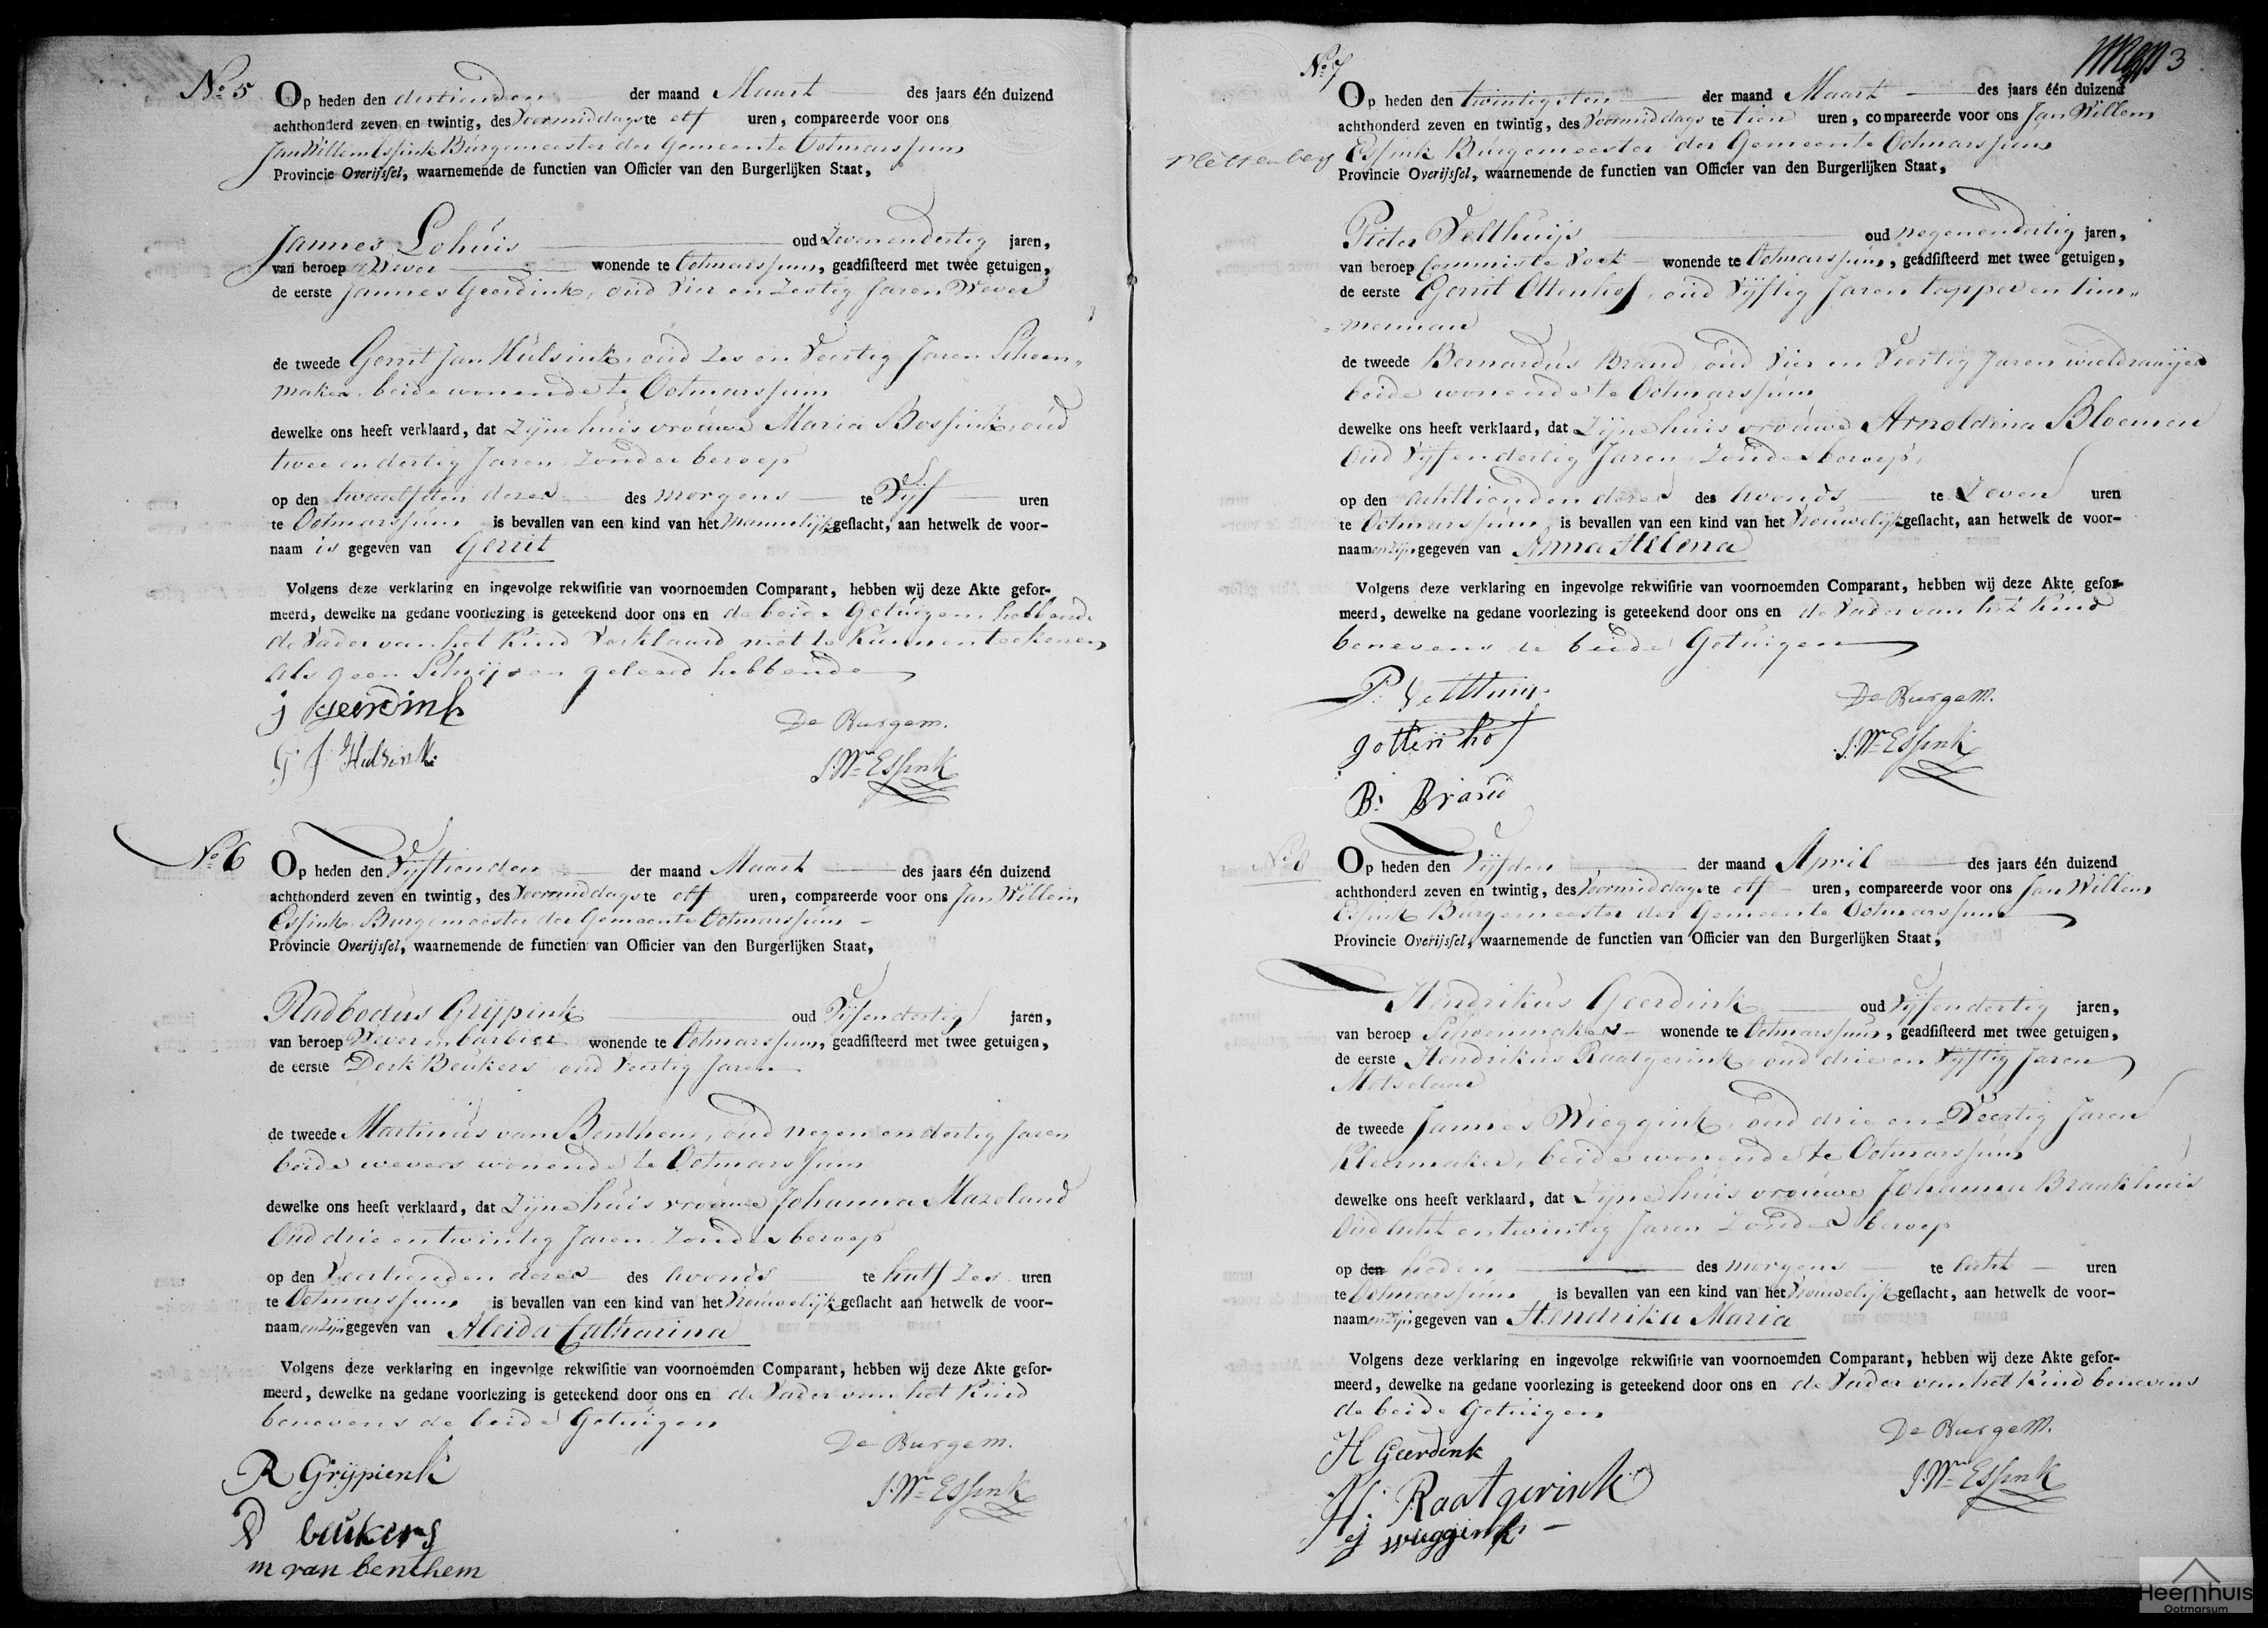 No 5
Op heden den dertienden der maand Maart des jaars één duizend
achthonderd zeven en twintig, des Voormiddags te elf uren, compareerde voor ons
Jan Willem Essink Burgemeester der Gemeente Ootmarssum
Provincie Overijssel, waarnemende de functien van Officier van den Burgerlijken Staat,
Jannes Lohuis oud Zevenendertig jaren,
van beroep Wever wonende te Ootmarssum, geadsisteerd met twee getuigen,
de eerste Jannes Geerdink, oud Vier en Zestig Jaren Wever
de tweede Gerrit Jan Hulsink, oud Zes en Veertig Jaren Schoen„
maker, beide wonende te Ootmarssum
dewelke ons heeft verklaard, dat Zijne huisvrouwe Maria Bossink, oud
twee en dertig Jaren, Zonder beroep
op den twaalfden dezer des morgens te Vijf uren
te Ootmarssum is bevallen van een kind van het Mannelijk geslacht, aan hetwelk de voor-
naam is gegeven van Gerrit
Volgens deze verklaring en ingevolge rekwisitie van voornoemden Comparant, hebben wij deze Akte gefor-
meerd, dewelke na gedane voorlezing is geteekend door ons en de beide Getuigen, hebbende
de Vader van het Kind Verklaard niet te Kunnen teekenen
als geen Schrijven geleerd hebbende
j geerdink
G J Hulsink
De Burgem.
J. Wm Essink
No 6
Op heden den Vijftienden der maand Maart des jaars één duizend
achthonderd zeven en twintig, des Voormiddags te elf uren, compareerde voor ons Jan Willem
Essink, Burgemeester der Gemeente Ootmarssum
Provincie Overijssel, waarnemende de functien van Officier van den Burgerlijken Staat,
Radbodus Grijpink oud Vijfendertig jaren,
van beroep Wever en barbier wonende te Ootmarssum, geadsisteerd met twee getuigen,
de eerste Derk Beukers oud Veertig Jaren
de tweede Martinus van Benthem, oud negen en dertig Jaren
beide wevers wonende te Ootmarssum
dewelke ons heeft verklaard, dat Zijne huisvrouwe Johanna Mazeland
Oud drie en twintig Jaren, Zonder beroep
op den Veertienden dezer des Avonds te half Zes uren
te Ootmarssum is bevallen van een kind van het Vrouwelijk geslacht aan hetwelk de voor-
naamen zijn gegeven van Aleida Catharina
Volgens deze verklaring en ingevolge rekwisitie van voornoemden Comparant, hebben wij deze Akte gefor-
meerd, dewelke na gedane voorlezing is geteekend door ons en de Vader van het Kind
benevens de beide Getuigen
De Burgem.
R Grijpienk
J. Wm Essink
D beukers
m van benthem
3
No 7
Op heden den twintigsten der maand Maart des jaars één duizend
achthonderd zeven en twintig, des Voormiddags te tien uren, compareerde voor ons Jan Willem
Plettenberg
Essink Burgemeester der Gemeente Ootmarssum
Provincie Overijssel, waarnemende de functien van Officier van den Burgerlijken Staat,
Pieter Velthuijs oud negenendertig jaren,
van beroep Commiste Voet wonende te Ootmarssum, geadsisteerd met twee getuigen,
de eerste Gerrit Ottenhof, oud Vijftig Jaren tapper en tim„
„merman
de tweede Bernardus Brand, oud Vier en Veertig Jaren wieldraaijer
beide wonende te Ootmarssum
dewelke ons heeft verklaard, dat Zijne huisvrouwe Arnoldina Bloemen
Oud Vijfendertig Jaren, Zonder beroep,
op den achttienden dezer des Avonds te Zeven uren
te Ootmarssum is bevallen van een kind van het Vrouwelijk geslacht, aan hetwelk de voor-
naamen zijn gegeven van Anna Helena
Volgens deze verklaring en ingevolge rekwisitie van voornoemden Comparant, hebben wij deze Akte gefor-
meerd, dewelke na gedane voorlezing is geteekend door ons en de Vader van het Kind
benevens de beide Getuigen
P. Velthuijs
De Burgem.
g otten hof
J. Wm Essink
B. Brand
No 8
Op heden den Vijfden der maand April des jaars één duizend
achthonderd zeven en twintig, des Voormiddags te elf uren, compareerde voor ons Jan Willem
Essink Burgemeester der Gemeente Ootmarssum
Provincie Overijssel, waarnemende de functien van Officier van den Burgerlijken Staat,
Hendrikus Geerdink oud Vijfendertig jaren,
van beroep Schoenmaker wonende te Ootmarssum, geadsisteerd met twee getuigen,
de eerste Hendrikus Raatgerink, oud drie en Vijftig Jaren
Metselaar
de tweede Jannes Wieggink, oud drie en Veertig Jaren
Kleermaker, beide wonende te Ootmarssum
dewelke ons heeft verklaard, dat Zijne huisvrouwe Johanna Braakhuis
Oud Acht en twintig Jaren Zonder beroep
op den heden des morgens te Acht uren
te Ootmarssum is bevallen van een kind van het Vrouwelijk geslacht, aan hetwelk de voor-
naamen zijn gegeven van Hendrika Maria
Volgens deze verklaring en ingevolge rekwisitie van voornoemden Comparant, hebben wij deze Akte gefor-
meerd, dewelke na gedane voorlezing is geteekend door ons en de Vader van het Kind benevens
de beide Getuigen
De Burgem.
H Geerdink
J. Wm Essink
H: Raatgerink
J wieggink
Heemhuis
Ootmarsum